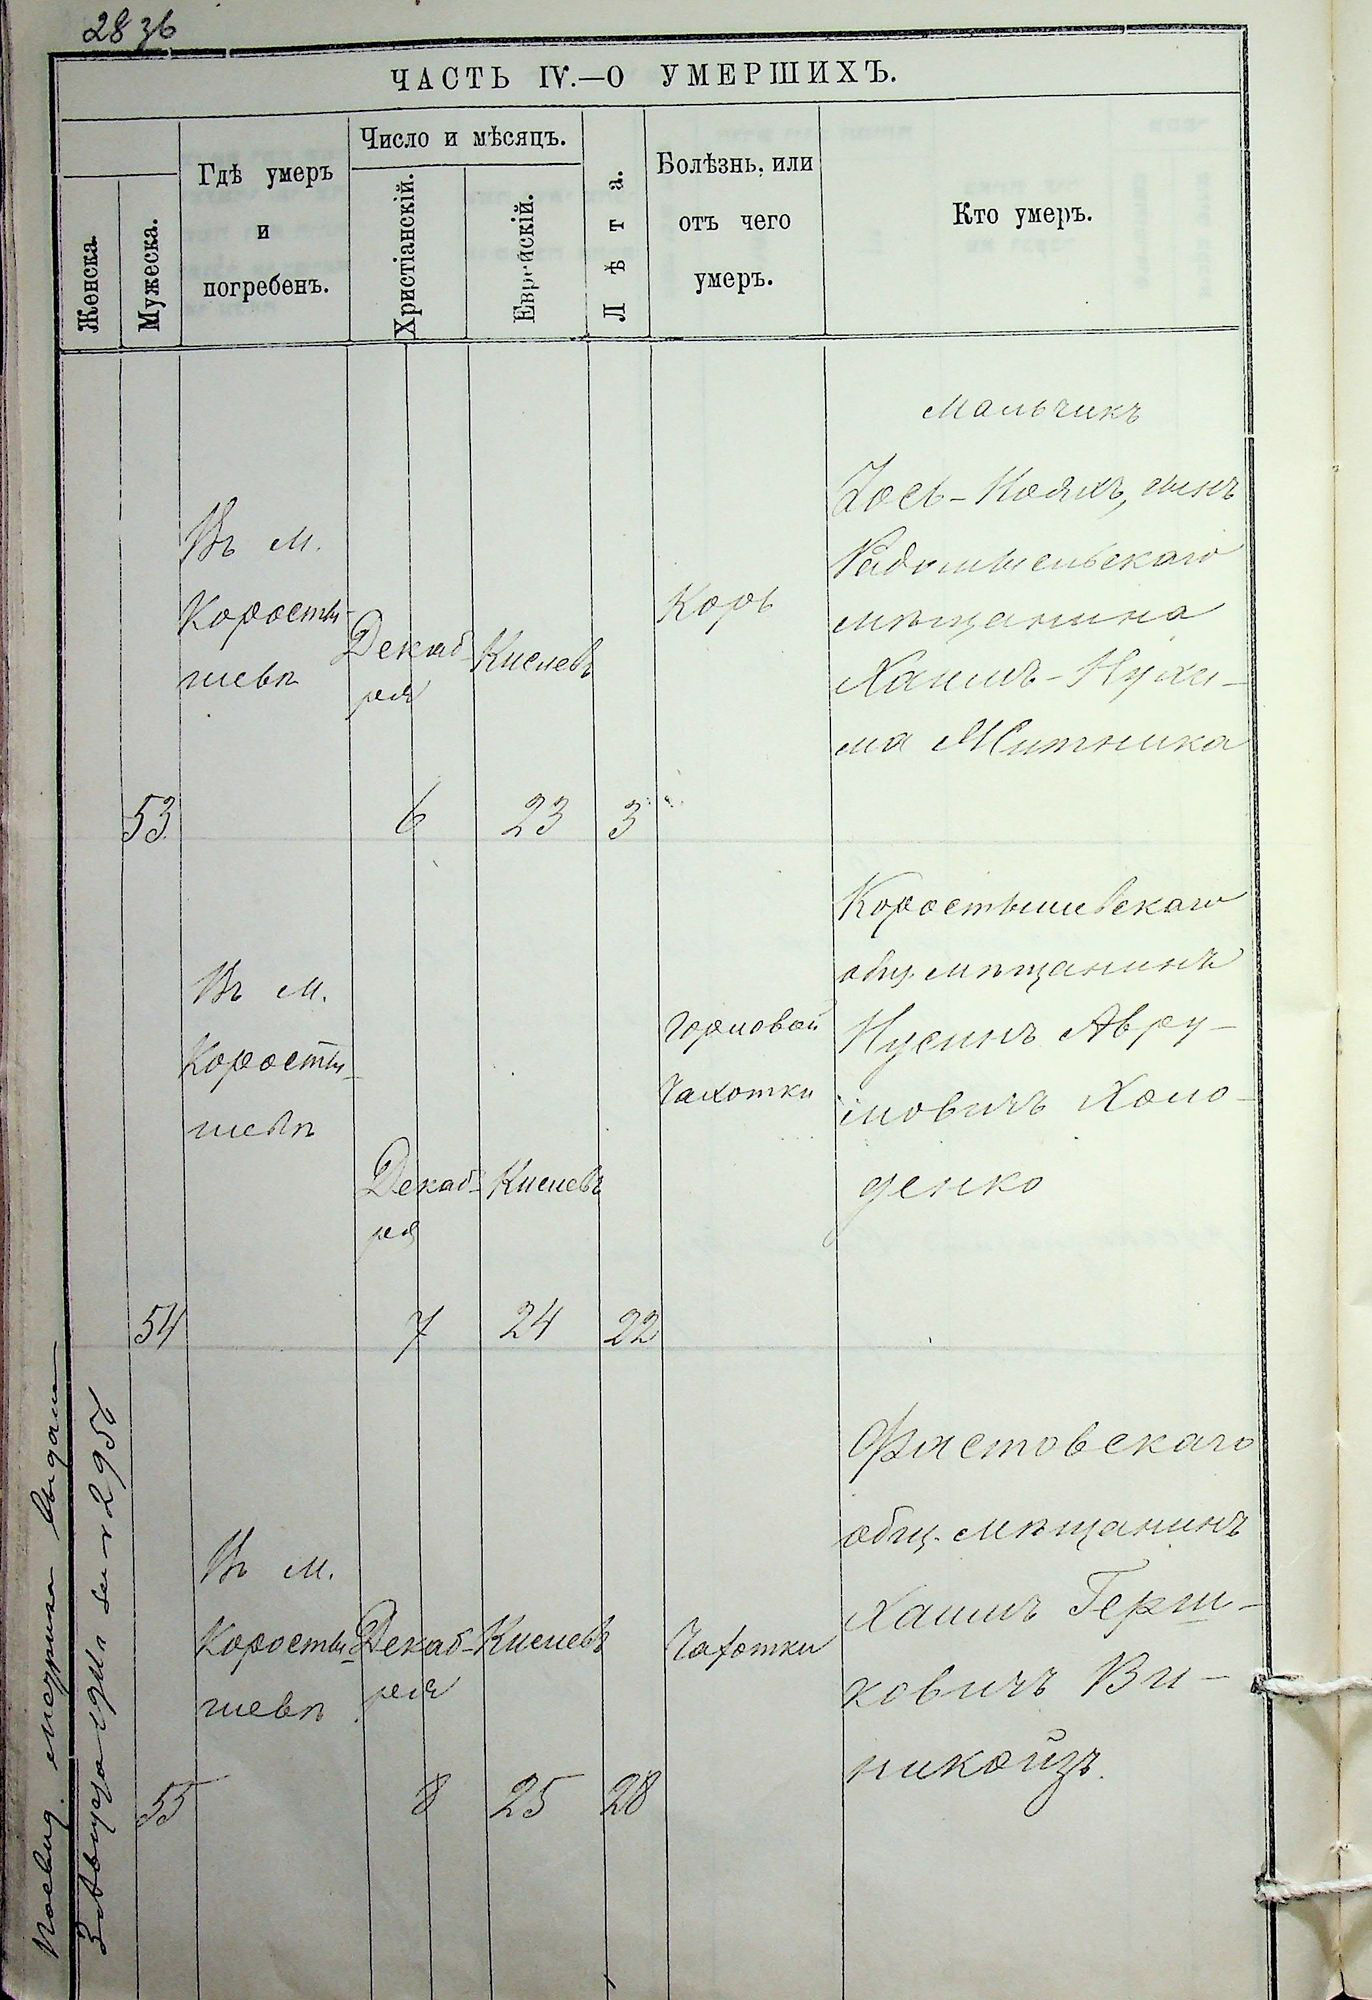 28 зв
ЧАСТЬ IV.—О УМЕРШИХЪ.
Женска.
Мужеска.
Гдѣ умеръ
и
погребенъ.
Число и мѣсяцъ.
Христіанскій.
Еврейскій.
Лѣта.
Болѣзнь, или
отъ чего
умеръ.
Кто умеръ.
53
Въ м.
Коросты-
шевѣ
Декаб-
ря
6
Кислевъ
23
3
Корь
Мальчикъ
Іось- сынъ
Радомысельскаго
мѣщанина
Хаимъ-Нухи-
ма Житника
54
Въ м.
Коросты-
шевѣ
Декаб-
ря
7
Кислевъ
24
22
Горловой
Чахотки
Коростышевскаго
общ. мѣщанинъ
Нусинъ Авру-
мовичъ Холо-
денко
55
Въ м.
Коросты-
шевѣ
Декаб-
ря
8
Кислевъ
25
28
Чахотки
Фастовскаго
общ. мѣщанинъ
Хаимъ Герш-
ковичъ Ви-
никойзъ.